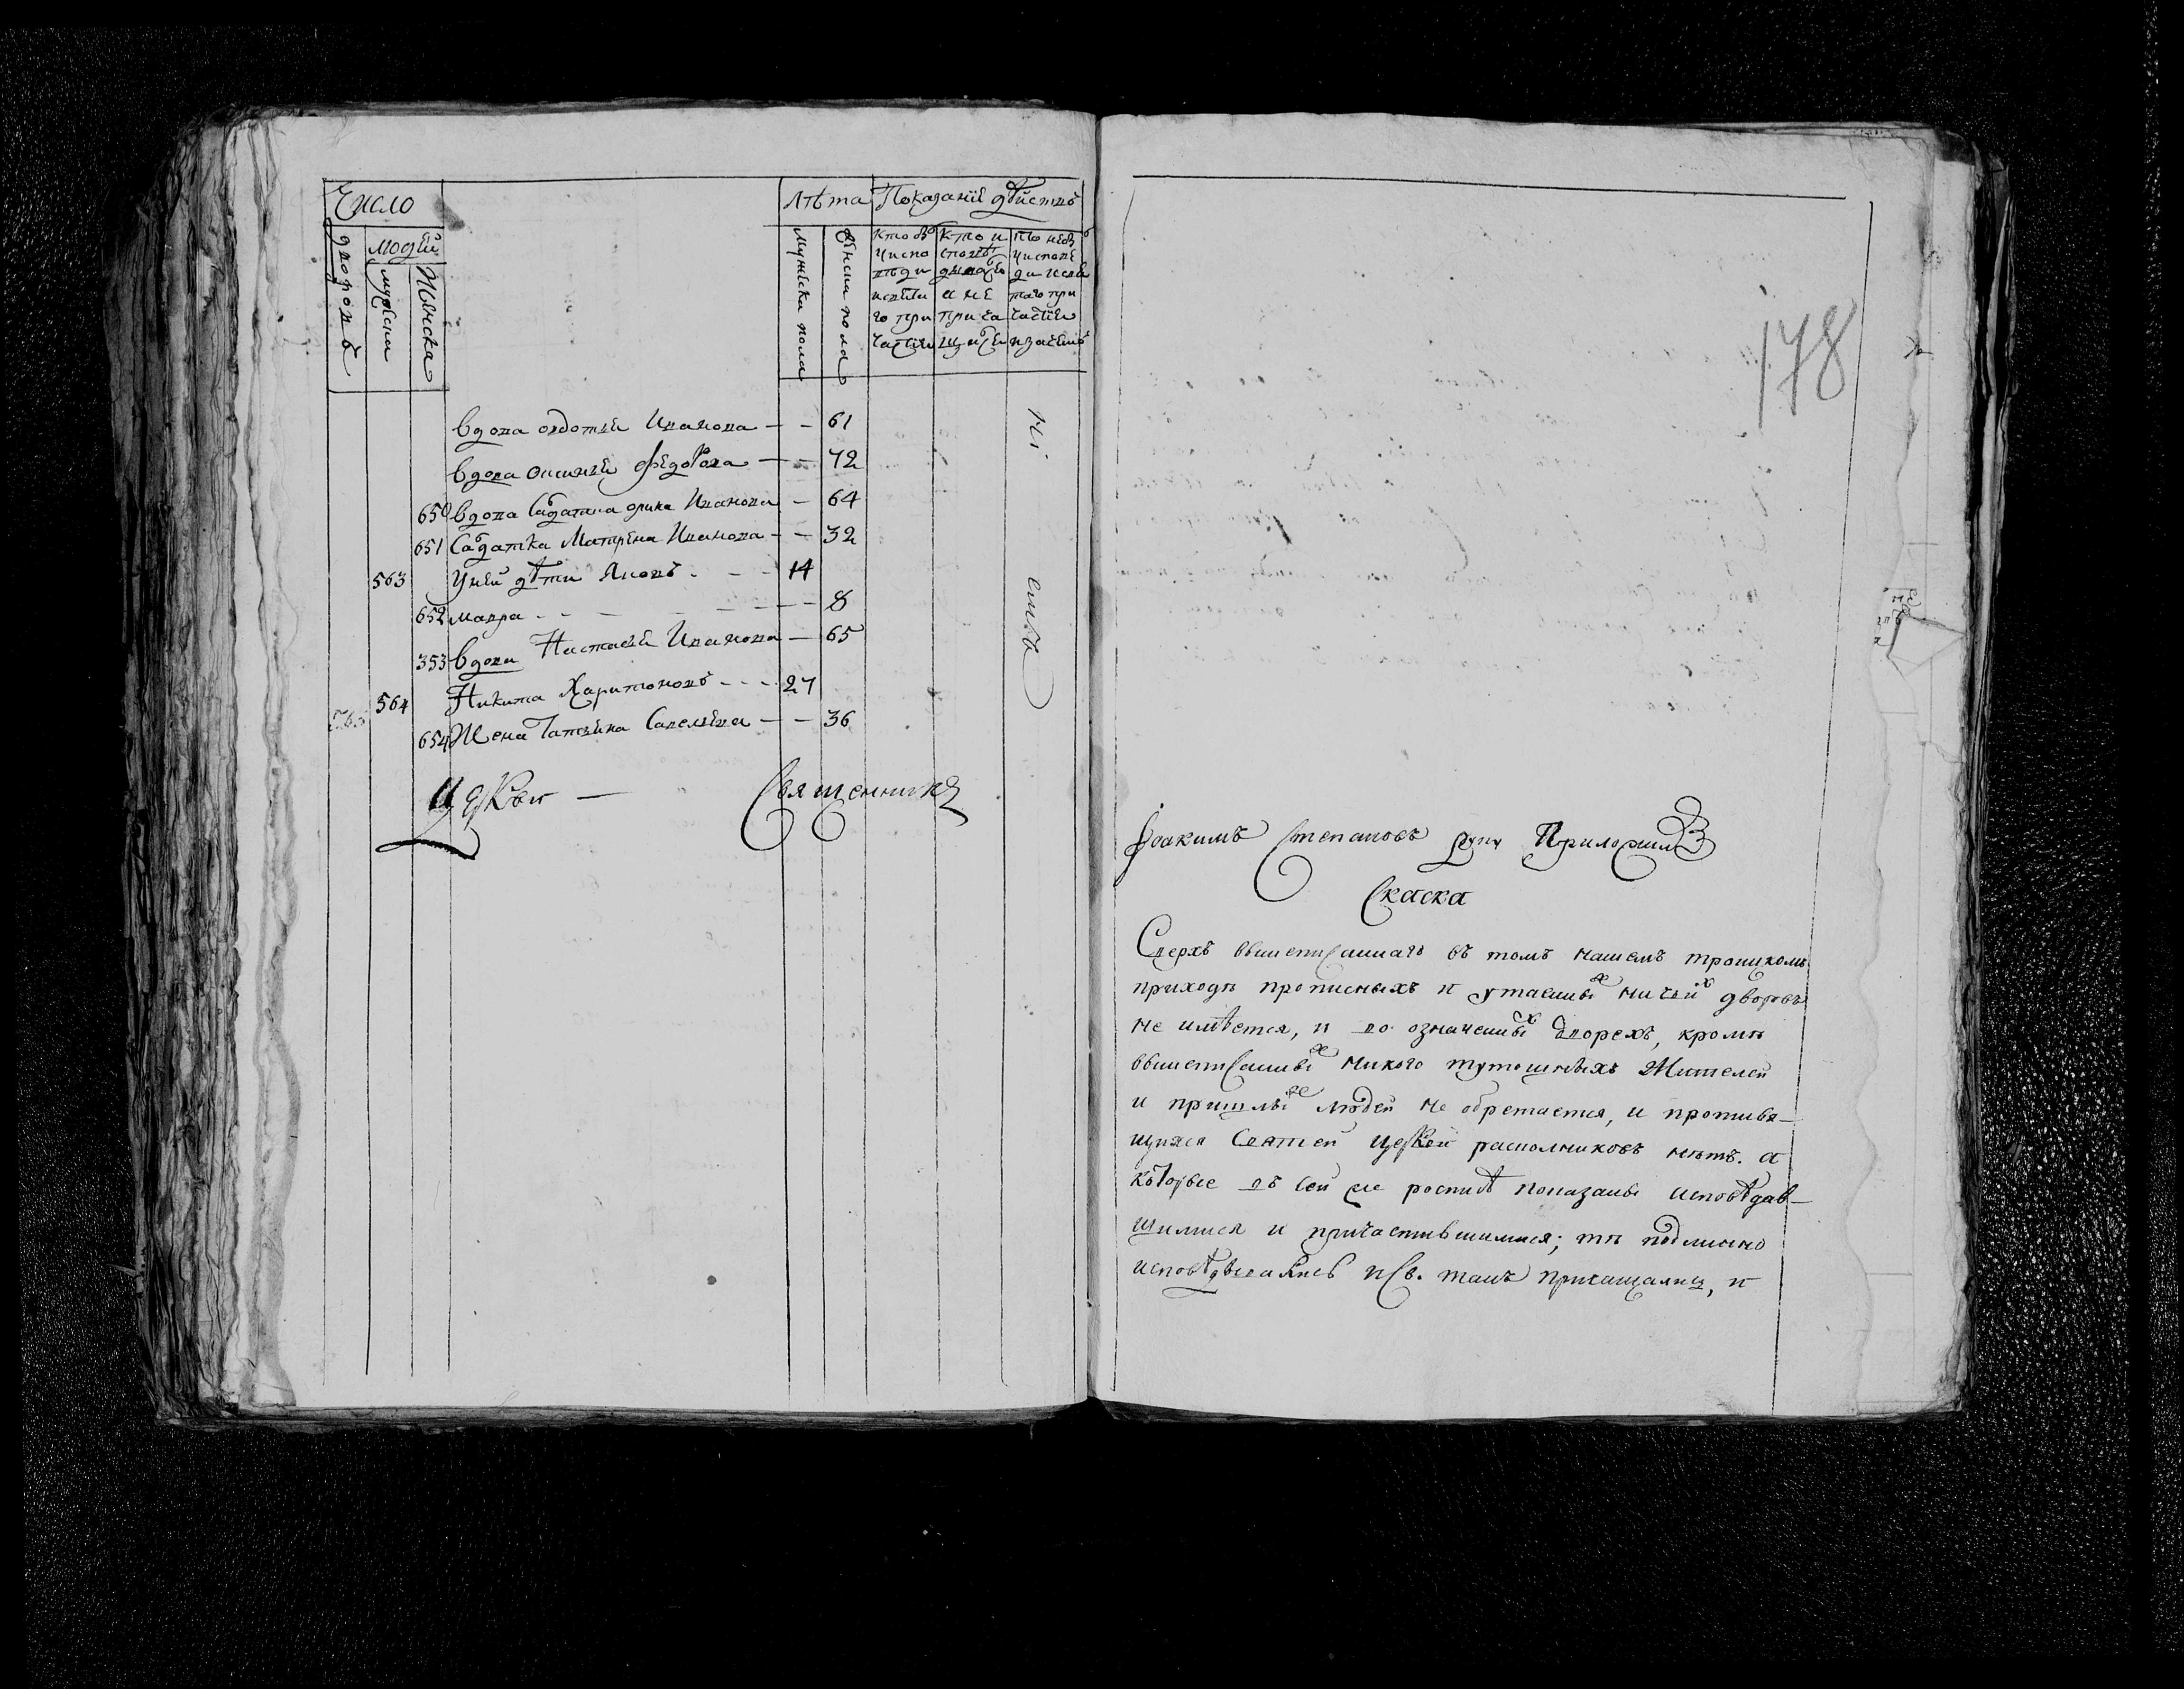 Число
Лѣта
Показаніе дѣйствъ
дворовъ
людей
мужеска
женска
мужеска пола
женска пола
кто
кто и
а не
го при
прича
вдова овдотья Иванова — — 61
вдова Федорова — — 72
650 вдова салдатка Иванова — 64
651 Салдатка Матрена Иванова — — 32
563 Уней дѣти Яковъ - - - 14
652 мавра - - - - - 8
353 вдова Настасья Иванова — 65
564 Никита Харитоновъ - - - 27
654 Жена Татьяна Савельева — — 36
Церкви — Священникъ
178
Іоакимъ Степановъ руку Приложилъ
Скаска
Сверхъ вышеписаннаго въ томъ нашемъ троицкомъ
приходѣ прописныхъ и утаенныхъ ничьихъ дворовъ
не имѣется, и во означенныхъ дворехъ, кромѣ
вышеписанныхъ никого тутошныхъ Жителей
и пришлыхъ людей не обретается, и противя–
щихся Святей церкви расколниковъ нѣтъ. а
которые въ сей же росписѣ показаны исповѣдав–
шимися и причастившимися; тѣ подлинно
исповѣдывались и св. таинъ причащались, и